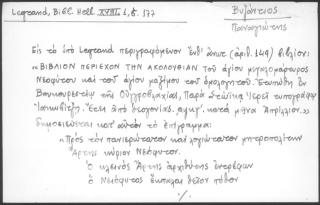 Legrand, Bibl. Hell. XVIII, 1, σ. 177
Βυζάντιος
Παναγιώτης
Εἰς τὸ ὑπὸ Legrand περιγραφόμενον ἐνθ' ἄνωτ. (ἀριθ. 149) βιβλίον:
«ΒΙΒΛΙΟΝ ΠΕΡΙΕΧΟΝ ΤΗΝ ΑΚΟΛΟΥΘΙΑΝ τοῦ ἁγίου μεγαλομάρτυρος
Νεοφύτου καὶ τοῦ ἁγίου μαξίμου τοῦ ὁμολογητοῦ. Ἐτυπώθη ἐν
Βουκουρεστίῳ τῆς Οὐγγροβλαχίας, Παρὰ Στόϊκα Ἱερεῖ τυπογράφῳ
Ἔτει ἀπὸ θεογονίας. κατὰ μῆνα Ἀπρίλλιον.»
δημοσιεύεται κατ' αὐτὸν τὸ ἐπίγραμμα:
«Πρὸς τὸν πανιερώτατον καὶ λογιώτατον μητροπολίτην
Ἄρτης κύριον Νεόφυτον.
Ὁ κλεινὸς Ἄρτης ἀρχιθύτης
ὁ Νεόφυτος θεῖον πόθον
./.